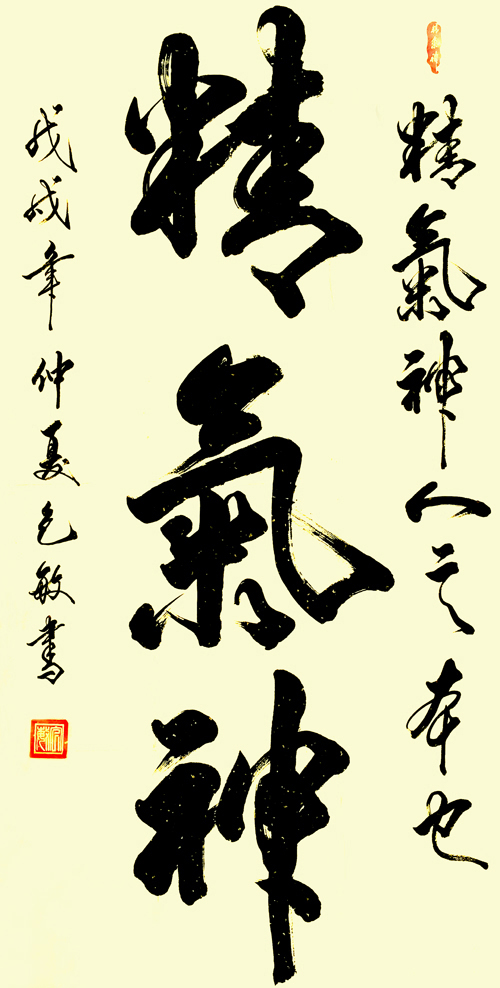 精氣神人之本也
精氣神
戊戌年仲夏包敏書